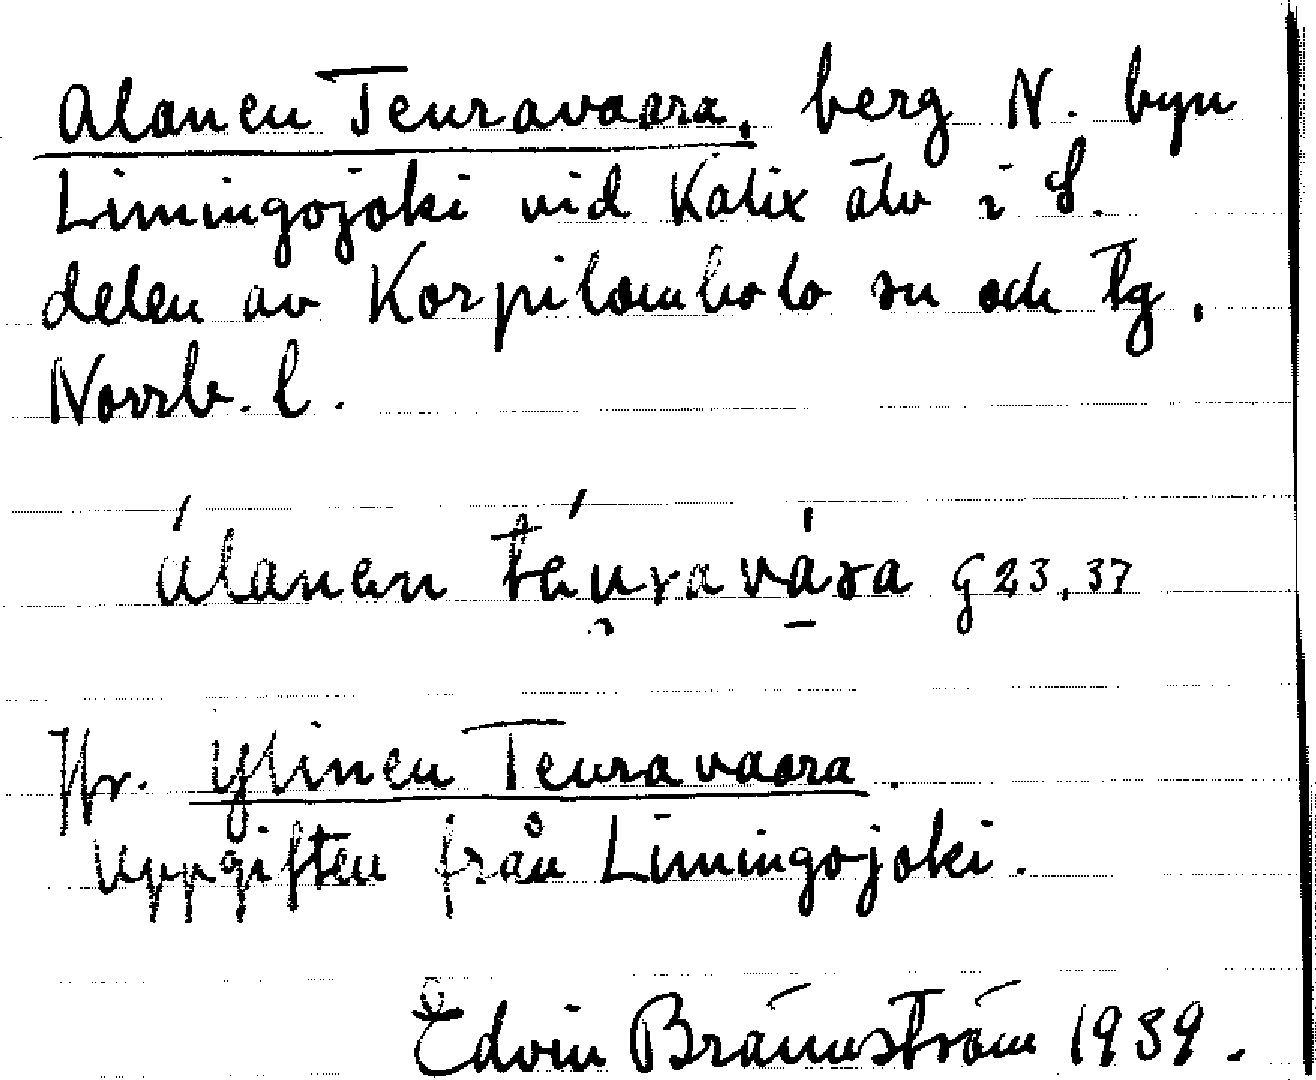 Alanen Teuravaara, berg N. byn
Limingojoki vid Kalix älv i S.
delen av Korpilombolo sn och tg,
Norrb. l.
álanen téu̯ravá̱ra G 23, 37
Jfr. Ylinen Teuravaara.
Uppgiften från Limingojoki.
Edvin Brännström 1939.